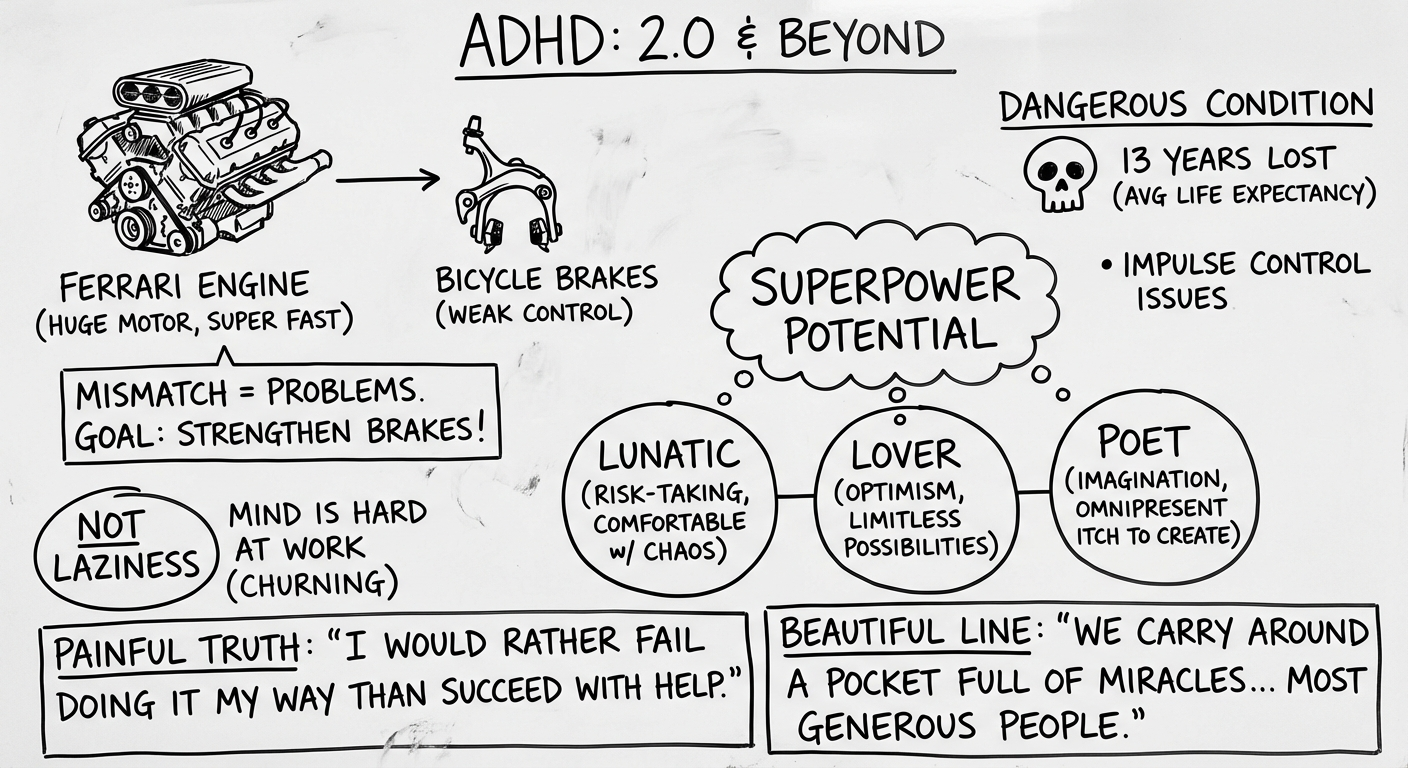 ADHD: 2.0 & BEYOND
FERRARI ENGINE
(HUGE MOTOR, SUPER FAST)
BICYCLE BRAKES
(WEAK CONTROL)
MISMATCH = PROBLEMS.
GOAL: STRENGTHEN BRAKES!
DANGEROUS CONDITION
13 YEARS LOST
(AVG LIFE EXPECTANCY)
• IMPULSE CONTROL
ISSUES
SUPERPOWER
POTENTIAL
LUNATIC
(RISK-TAKING,
COMFORTABLE
w/ CHAOS)
LOVER
(OPTIMISM,
LIMITLESS
POSSIBILITIES)
POET
(IMAGINATION,
OMNIPRESENT
ITCH TO CREATE)
NOT
LAZINESS
MIND IS HARD
AT WORK
(CHURNING)
PAINFUL TRUTH: "I WOULD RATHER FAIL
DOING IT MY WAY THAN SUCCEED WITH HELP."
BEAUTIFUL LINE: "WE CARRY AROUND
A POCKET FULL OF MIRACLES... MOST
GENEROUS PEOPLE."